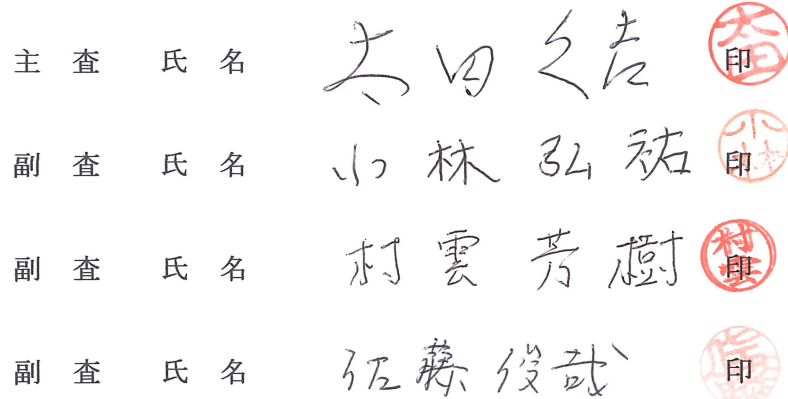 主査 氏名 太田久吉 印
副査 氏名 小林弘祐 印
副査 氏名 村雲芳樹 印
副査 氏名 佐藤俊哉 印